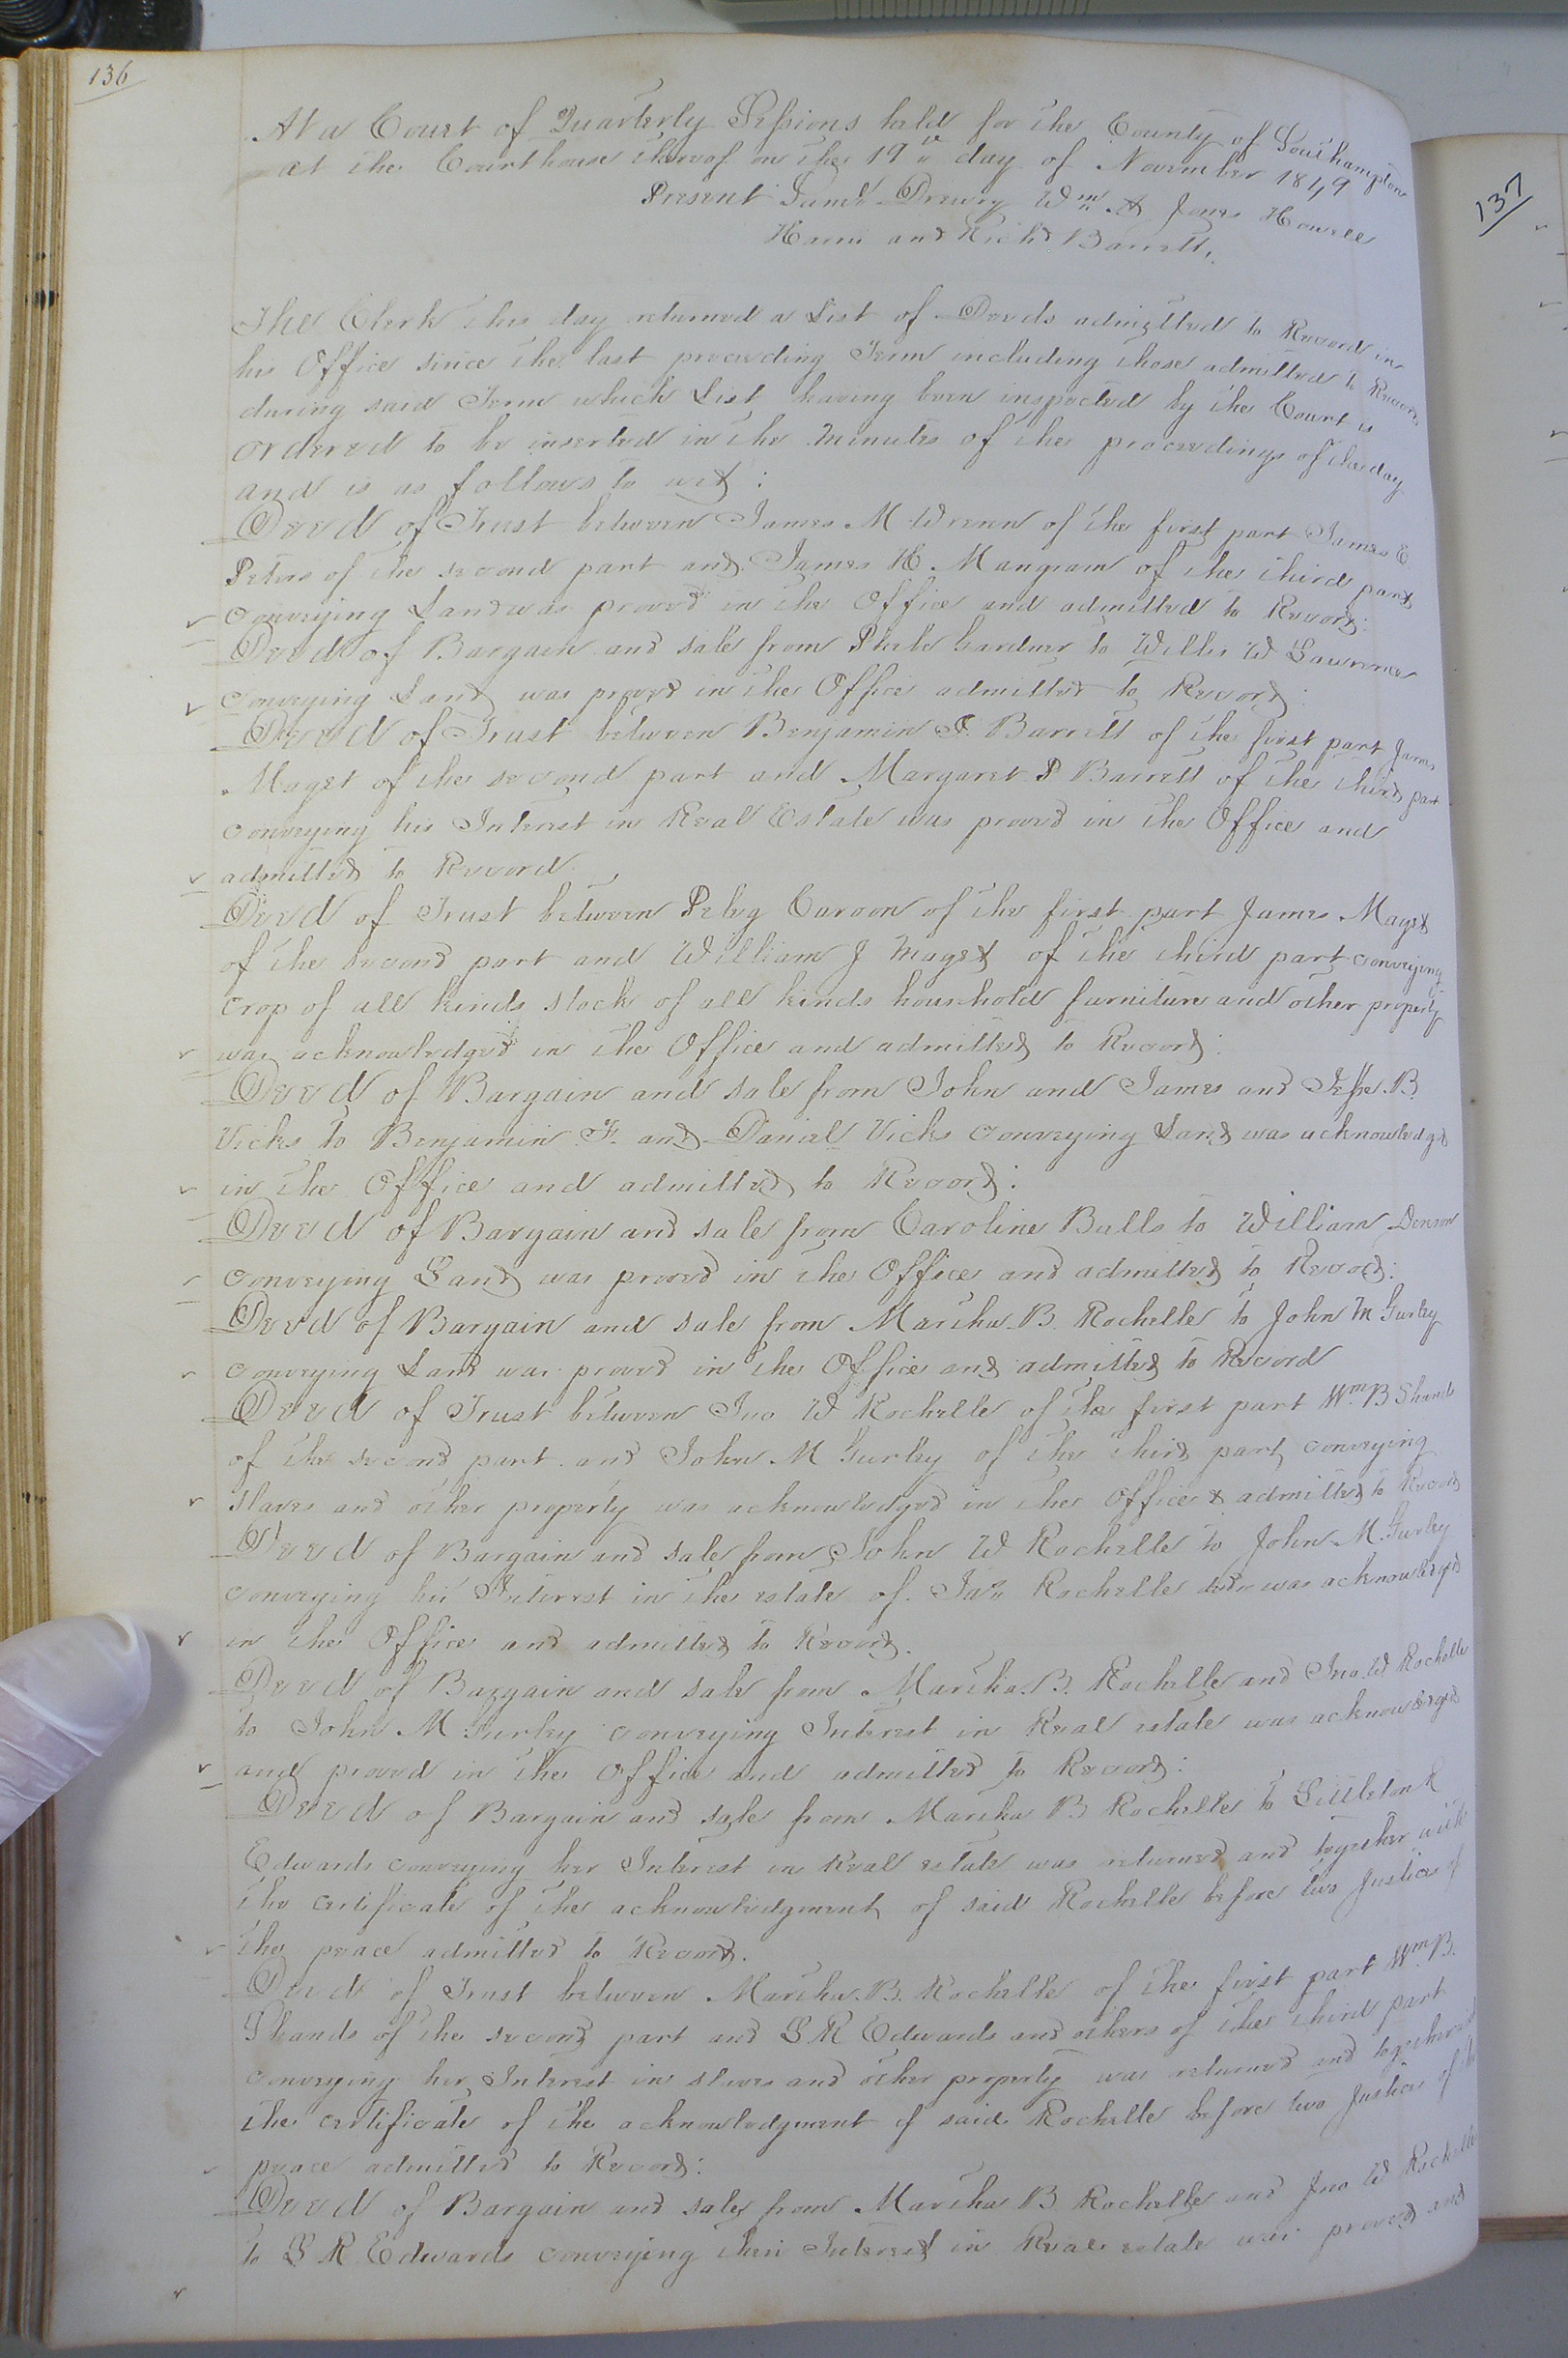 136
At a Court of Quarterly Sessions held for the County of Southampton
at the Courthouse thereof on the 19th day of November 1849
Present Saml. Drewry Wm. A Jones Howell
Harris and Richd Barrett,
The Clerk this day returned a List of Deeds admitted to Record in
his Office since the last preceeding Term including those admitted to Record
during said Term which List having been inspected by the Court is
ordered to be inserted in the Minutes of the proceedings of the day
and is as follows to wit:
Deed of Trust between James M Wrenn of the first part James E
Peters of the second part and James H. Mangram of the third part
conveying Land was proved in the Office and admitted to Record:
Deed of Bargain and sale from Gardner to Willis W Lawrence
conveying Land was proved in the Office admitted to Record:
Deed of Trust between Benjamin Barrett of the first part James
Maget of the second part and Margaret P Barrett of the third part
conveying his Interest in Real Estate was proved in the Office and
admitted to Record
Deed of Trust between Peleg Carson of the first part James Maget
of the second part and William J Maget of the third part conveying
crop of all kinds stock of all kinds household furniture and other property
was acknowledged in the Office and admitted to Record:
Deed of Bargain and sale from John and James and Jesse B.
Vicks to Benjamin F. and Daniel Vicks conveying Land was acknowledged
in the Office and admitted to Record:
Deed of Bargain and sale from Caroline Butts to William Denson
conveying Land was proved in the Office and admitted to Record:
Deed of Bargain and sale from Martha B. Rochelle to John M Gurley
conveying Land was proved in the Office and admitted to Record
Deed of Trust between Jno W Rochelle of the first part Wm. B Shands
of the second part and John M Gurley of the third part conveying
slaves and other property was acknowledged in the Office & admitted to Record
Deed of Bargain and sale from John W Rochelle to John M. Gurley
conveying his Interest in the estate of Jas. Rochelle decd was acknowledged
in the Office and admitted to Record.
Deed of Bargain and sale from Martha B. Rochelle and Jno. W Rochelle
to John M Gurley conveying Interest in Real estate was acknowledged
and proved in the Office and admitted to Record:
Deed of Bargain and sale from Martha B Rochelle to Littleton R
Edwards conveying her Interest in Real estate was returned and together with
the certificate of the acknowledgment of said Rochelle before two Justices of
the peace admitted to Record.
Deed of Trust between Martha B. Rochelle of the first part Wm. B.
Shands of the second part and L R Edwards and others of the third part
conveying her Interest in slaves and other property was returned and together with
the certificate of the acknowledgment of said Rochelle before two Justices of the
peace admitted to Record:
Deed of Bargain and sale from Martha B Rochelle and Jno W Rochelle
to L R Edwards conveying their Interest in Real estate was proved and
137